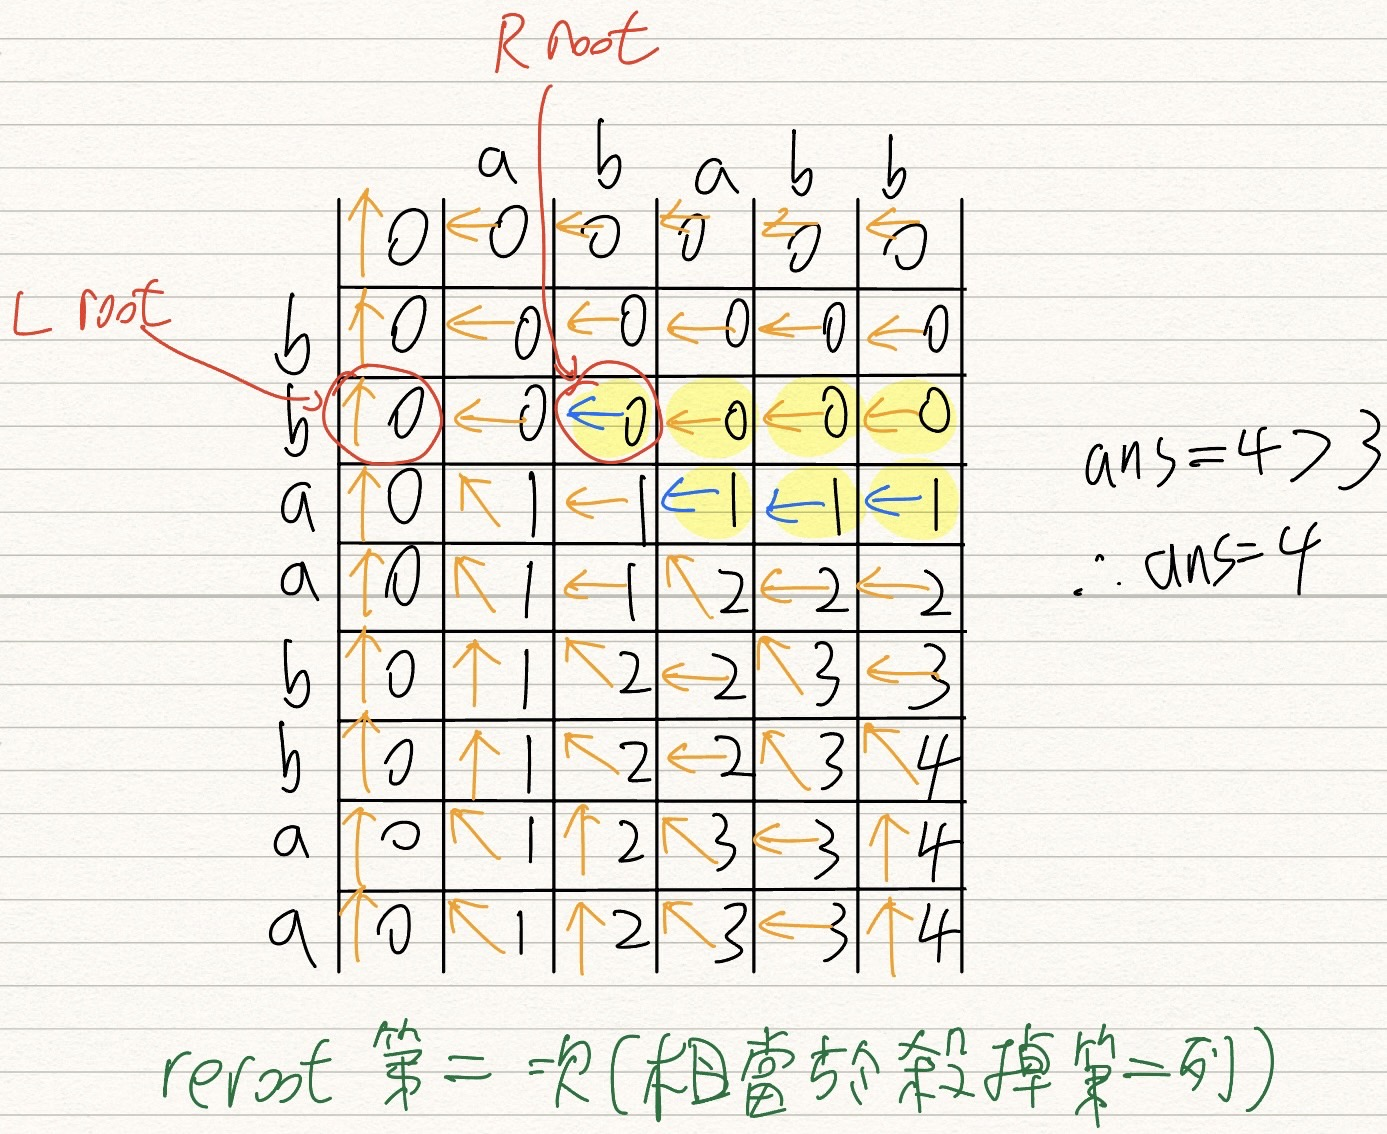 R root
a b a b b
0 ←0 ←0 ←0 ←0 ←0
L root
b ↑0 ←0 ←0 ←0 ←0 ←0
b ↑0 ←0 ←0 ←0 ←0 ←0
a ↑0 ↖1 ←1 ←1 ←1 ←1
a ↑0 ↖1 ←1 ↖2 ←2 ←2
b ↑0 ↑1 ↖2 ←2 ↖3 ←3
b ↑0 ↑1 ↖2 ←2 ↖3 ↖4
a ↑0 ↖1 ↑2 ↖3 ←3 ↑4
a ↑0 ↖1 ↑2 ↖3 ←3 ↑4
ans=4>3
∴ ans=4
reroot 第二次(相當於殺掉第二列)